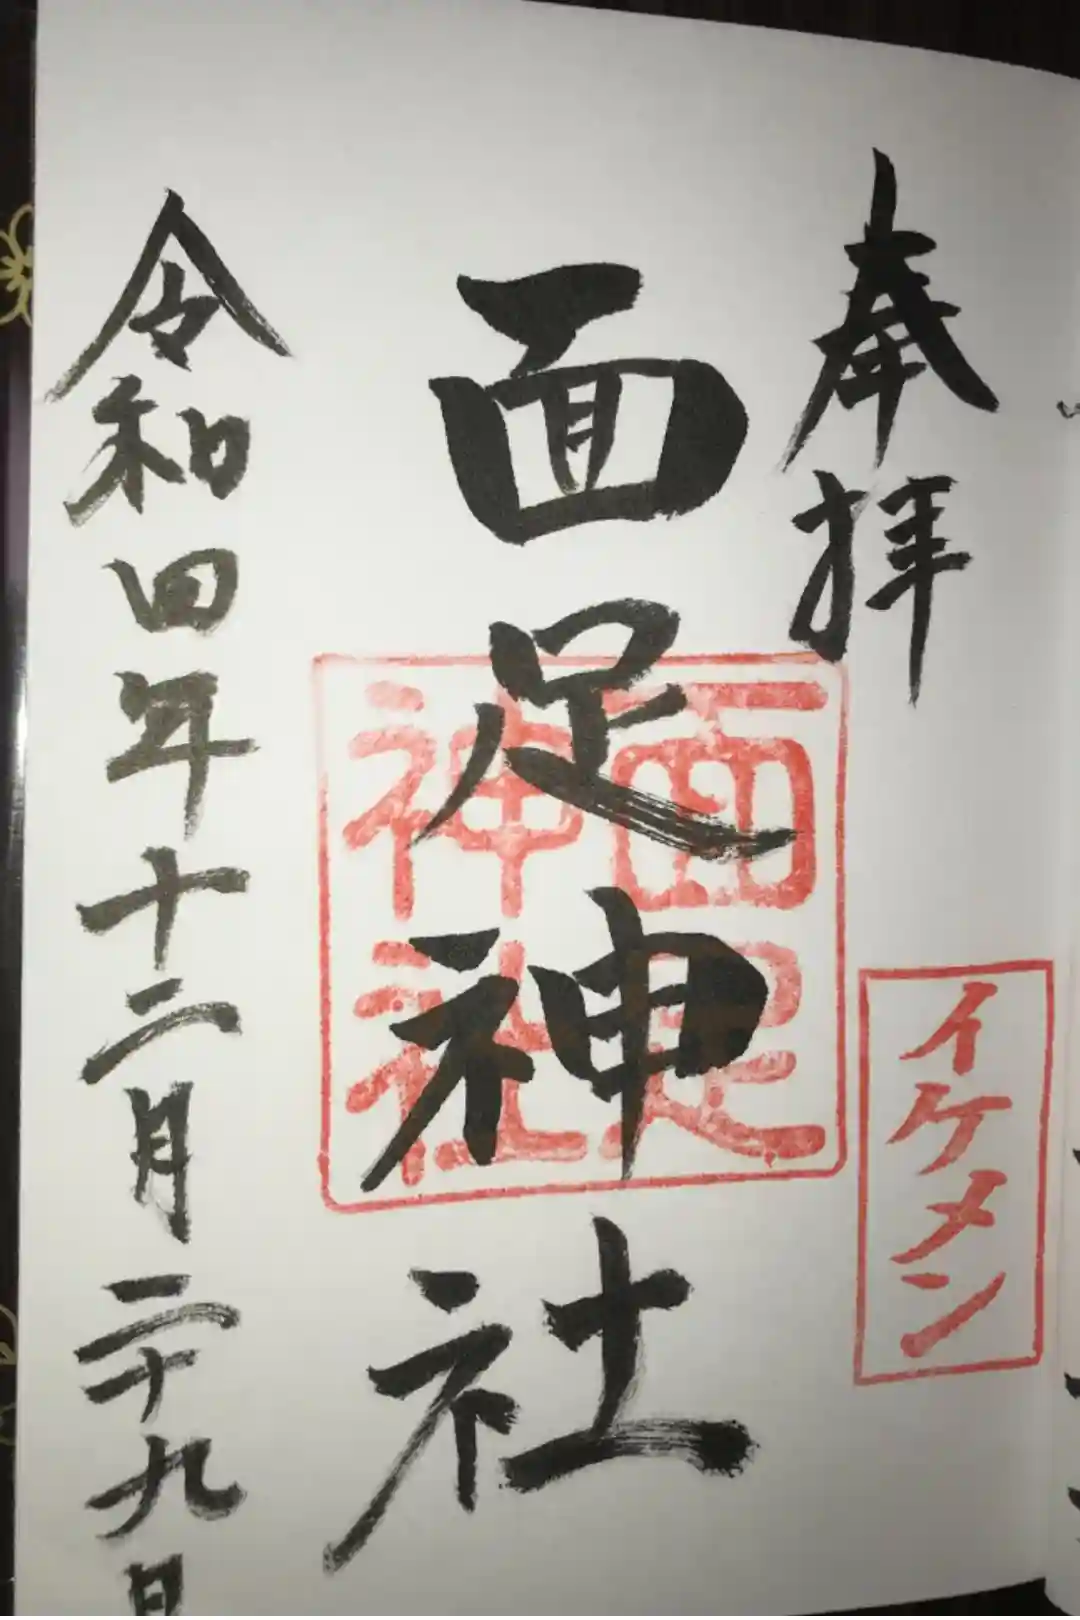 奉拝
イケメン
面足神社
面足
神社
令和四年十二月二十九日